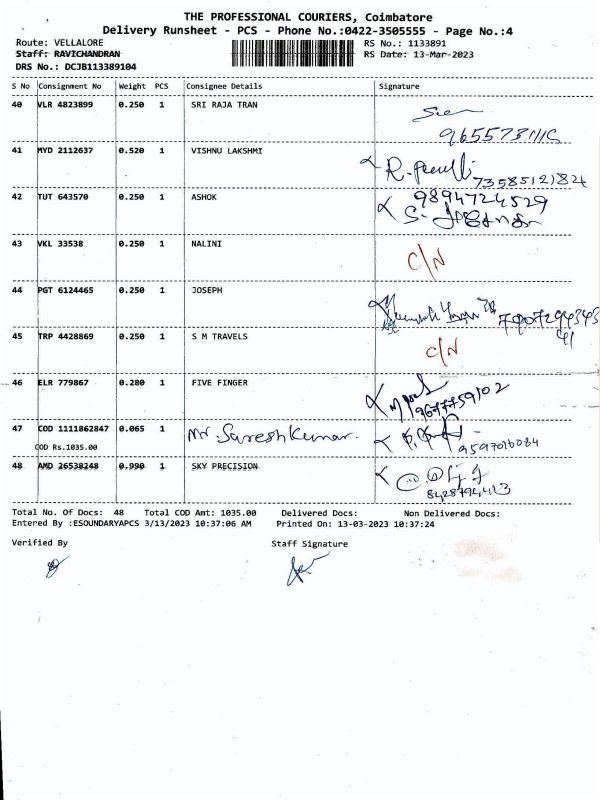 THE PROFESSIONAL COURIERS, Coimbatore
Delivery Runsheet - PCS - Phone No.:0422-3505555 - Page No.:4
Route: VELLALORE
RS No.: 1133891
Staff: RAVICHANDRAN
RS Date: 13-Mar-2023
DRS No.: DCJB113389104
S No Consignment No Weight PCS Consignee Details Signature
40 VLR 4823899 0.250 1 SRI RAJA TRAN
41 MYD 2112637 0.520 1 VISHNU LAKSHMI
7358512182
42 TUT 643570 0.250 1 ASHOK 9894724529
43 VKL 33538 0.250 1 NALINI C/N
44 PGT 6124465 0.250 1 JOSEPH
45 TRP 4428869 0.250 1 S M TRAVELS C/N
46 ELR 779867 0.280 1 FIVE FINGER
9677759102
47 COD 1111862847 0.065 1 Mr. Sureshkumar.
COD Rs.1035.00
48 AMD 26538248 0.990 1 SKY PRECISION
Total No. Of Docs: 48 Total COD Amt: 1035.00 Delivered Docs: Non Delivered Docs:
Entered By :ESOUNDARYAPCS 3/13/2023 10:37:06 AM Printed On: 13-03-2023 10:37:24
Verified By Staff Signature